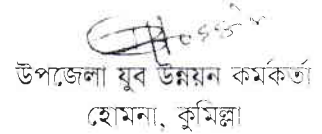 উপজেলা যুব উন্নয়ন কর্মকর্তা
হোমনা, কুমিল্লা